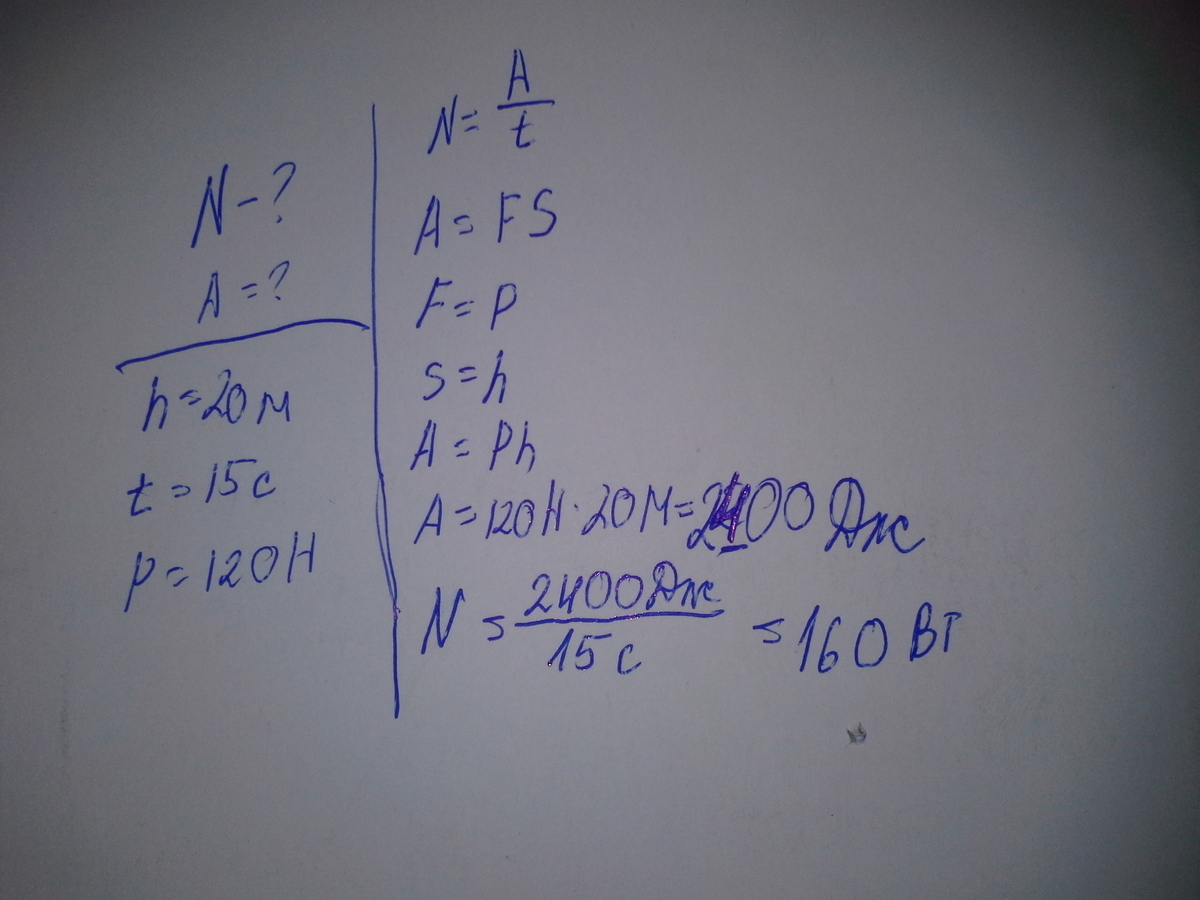 N-?
A=?
h=20м
t=15с
P=120Н
N=A/t
A=FS
F=P
S=h
A=Ph
A=120Н·20м=2400 Дж
N=2400Дж/15с=160 Вт